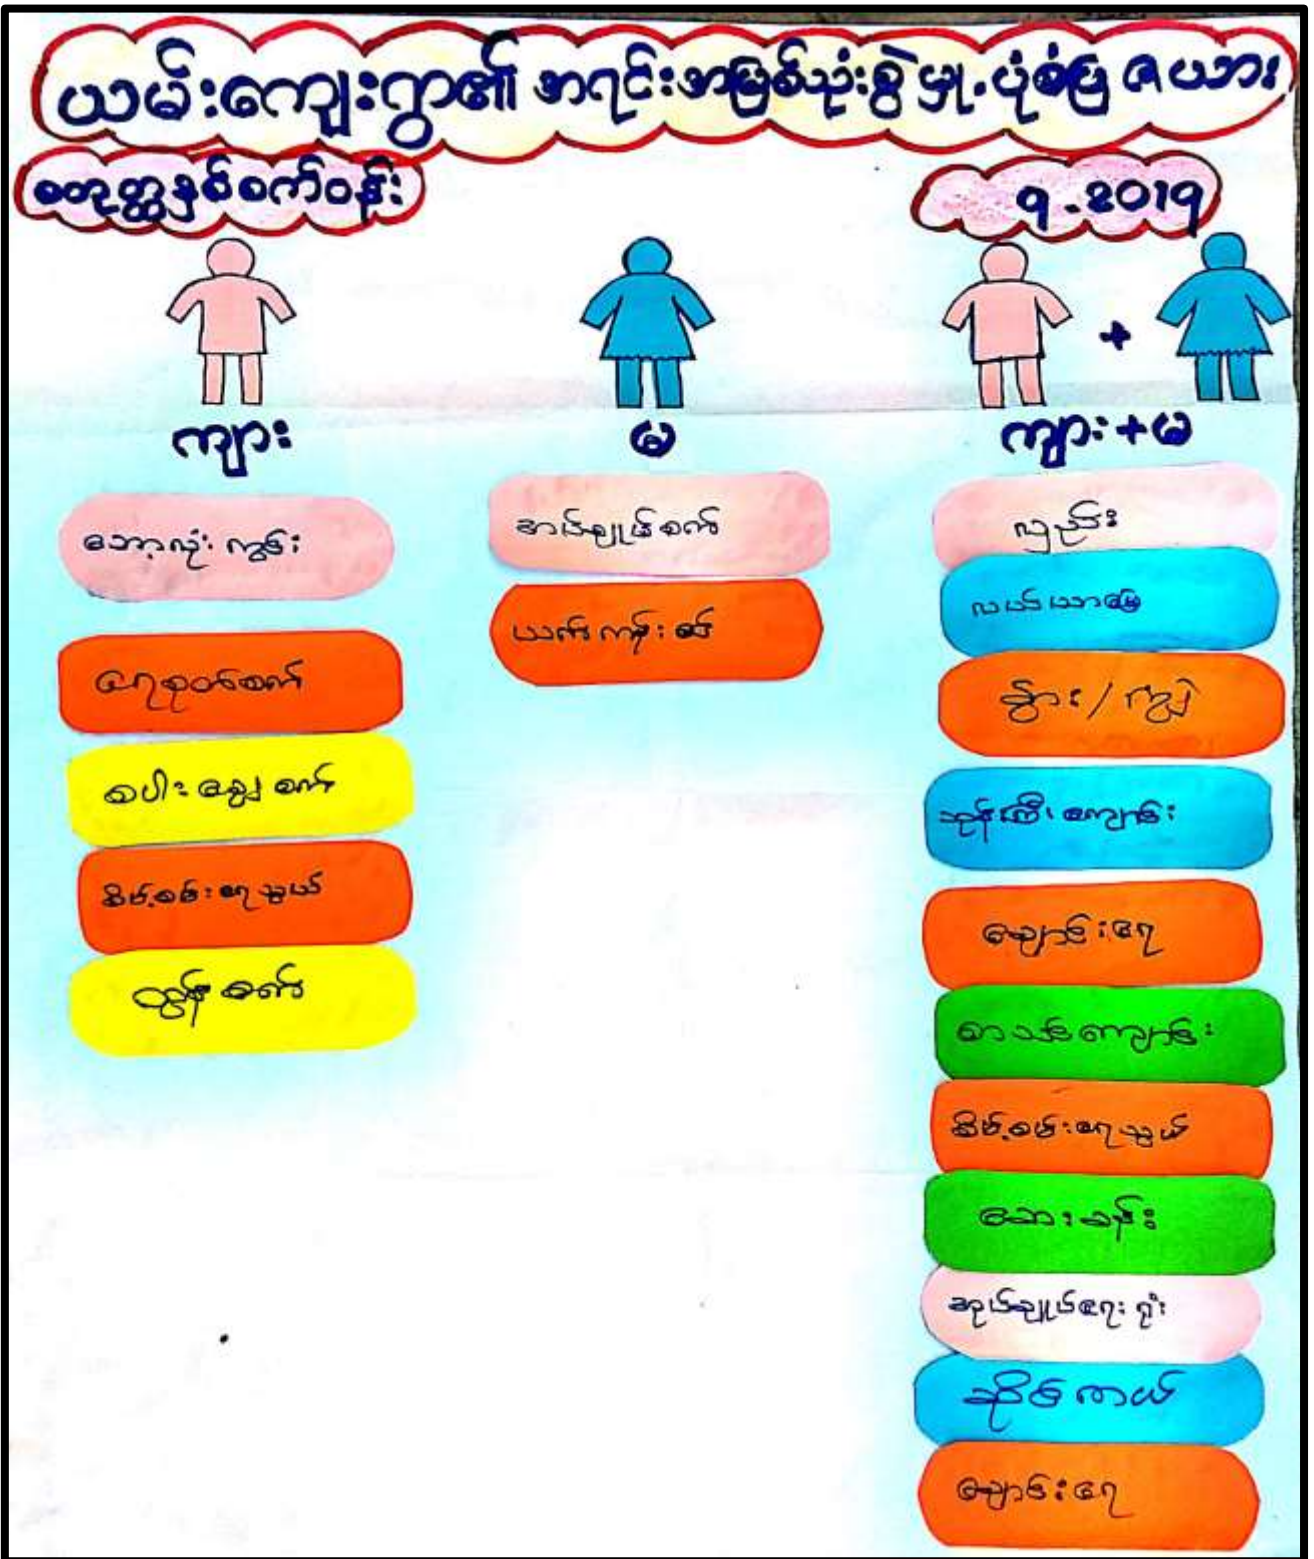 ယမ်းကျေးရွာ၏ အရင်းအမြစ်သုံးစွဲမှု.ပုံစံပြ ဇယား
စတုတ္ထနှစ်စက်ဝန်း
9.2019
+
ကျား
မ
ကျား+မ
ဘော့လုံး ကွင်း
ရေစုတ်စက်
စပါးချွေစက်
စိမ့်စမ်းရေသွယ်
ထွန်စက်
အပ်ချုပ်စက်
ယက်ကန်းစင်
လှည်း
လယ်ယာမြေ
နွား/ကျွဲ
ဘုန်းကြီးကျောင်း
ချောင်းရေ
စာသင်ကျောင်း
စိမ့်စမ်းရေသွယ်
ဆေးခန်း
အုပ်ချုပ်ရေးရုံး
ဆိုင်ကယ်
ချောင်းရေ